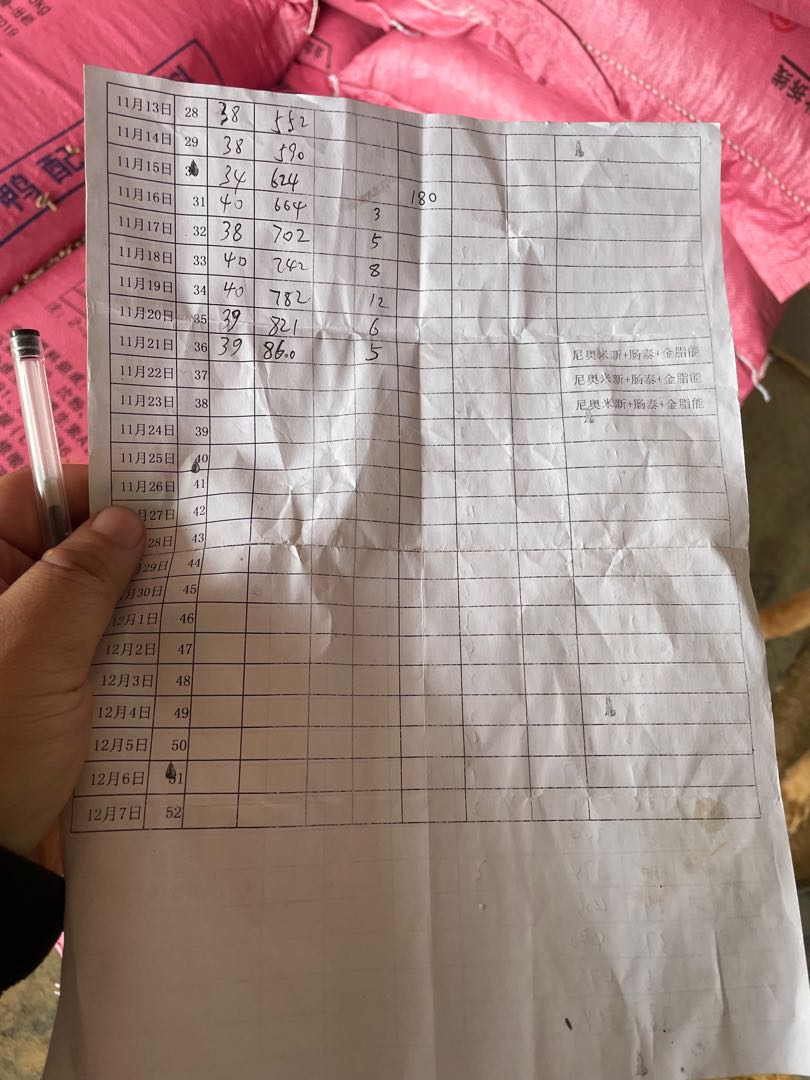 11月13日 28 38 552
11月14日 29 38 590
11月15日 34 624
11月16日 31 40 664 3 180
11月17日 32 38 702 5
11月18日 33 40 742 8
11月19日 34 40 782 12
11月20日 35 39 821 6
11月21日 36 39 860 5 尼奥米新+肠泰+金脂能
11月22日 37 尼奥米新+肠泰+金脂能
11月23日 38 尼奥米新+肠泰+金脂能
11月24日 39
11月25日 40
11月26日 41
27日 42
28日 43
29日 44
月30日 45
12月1日 46
12月2日 47
12月3日 48
12月4日 49
12月5日 50
12月6日 51
12月7日 52